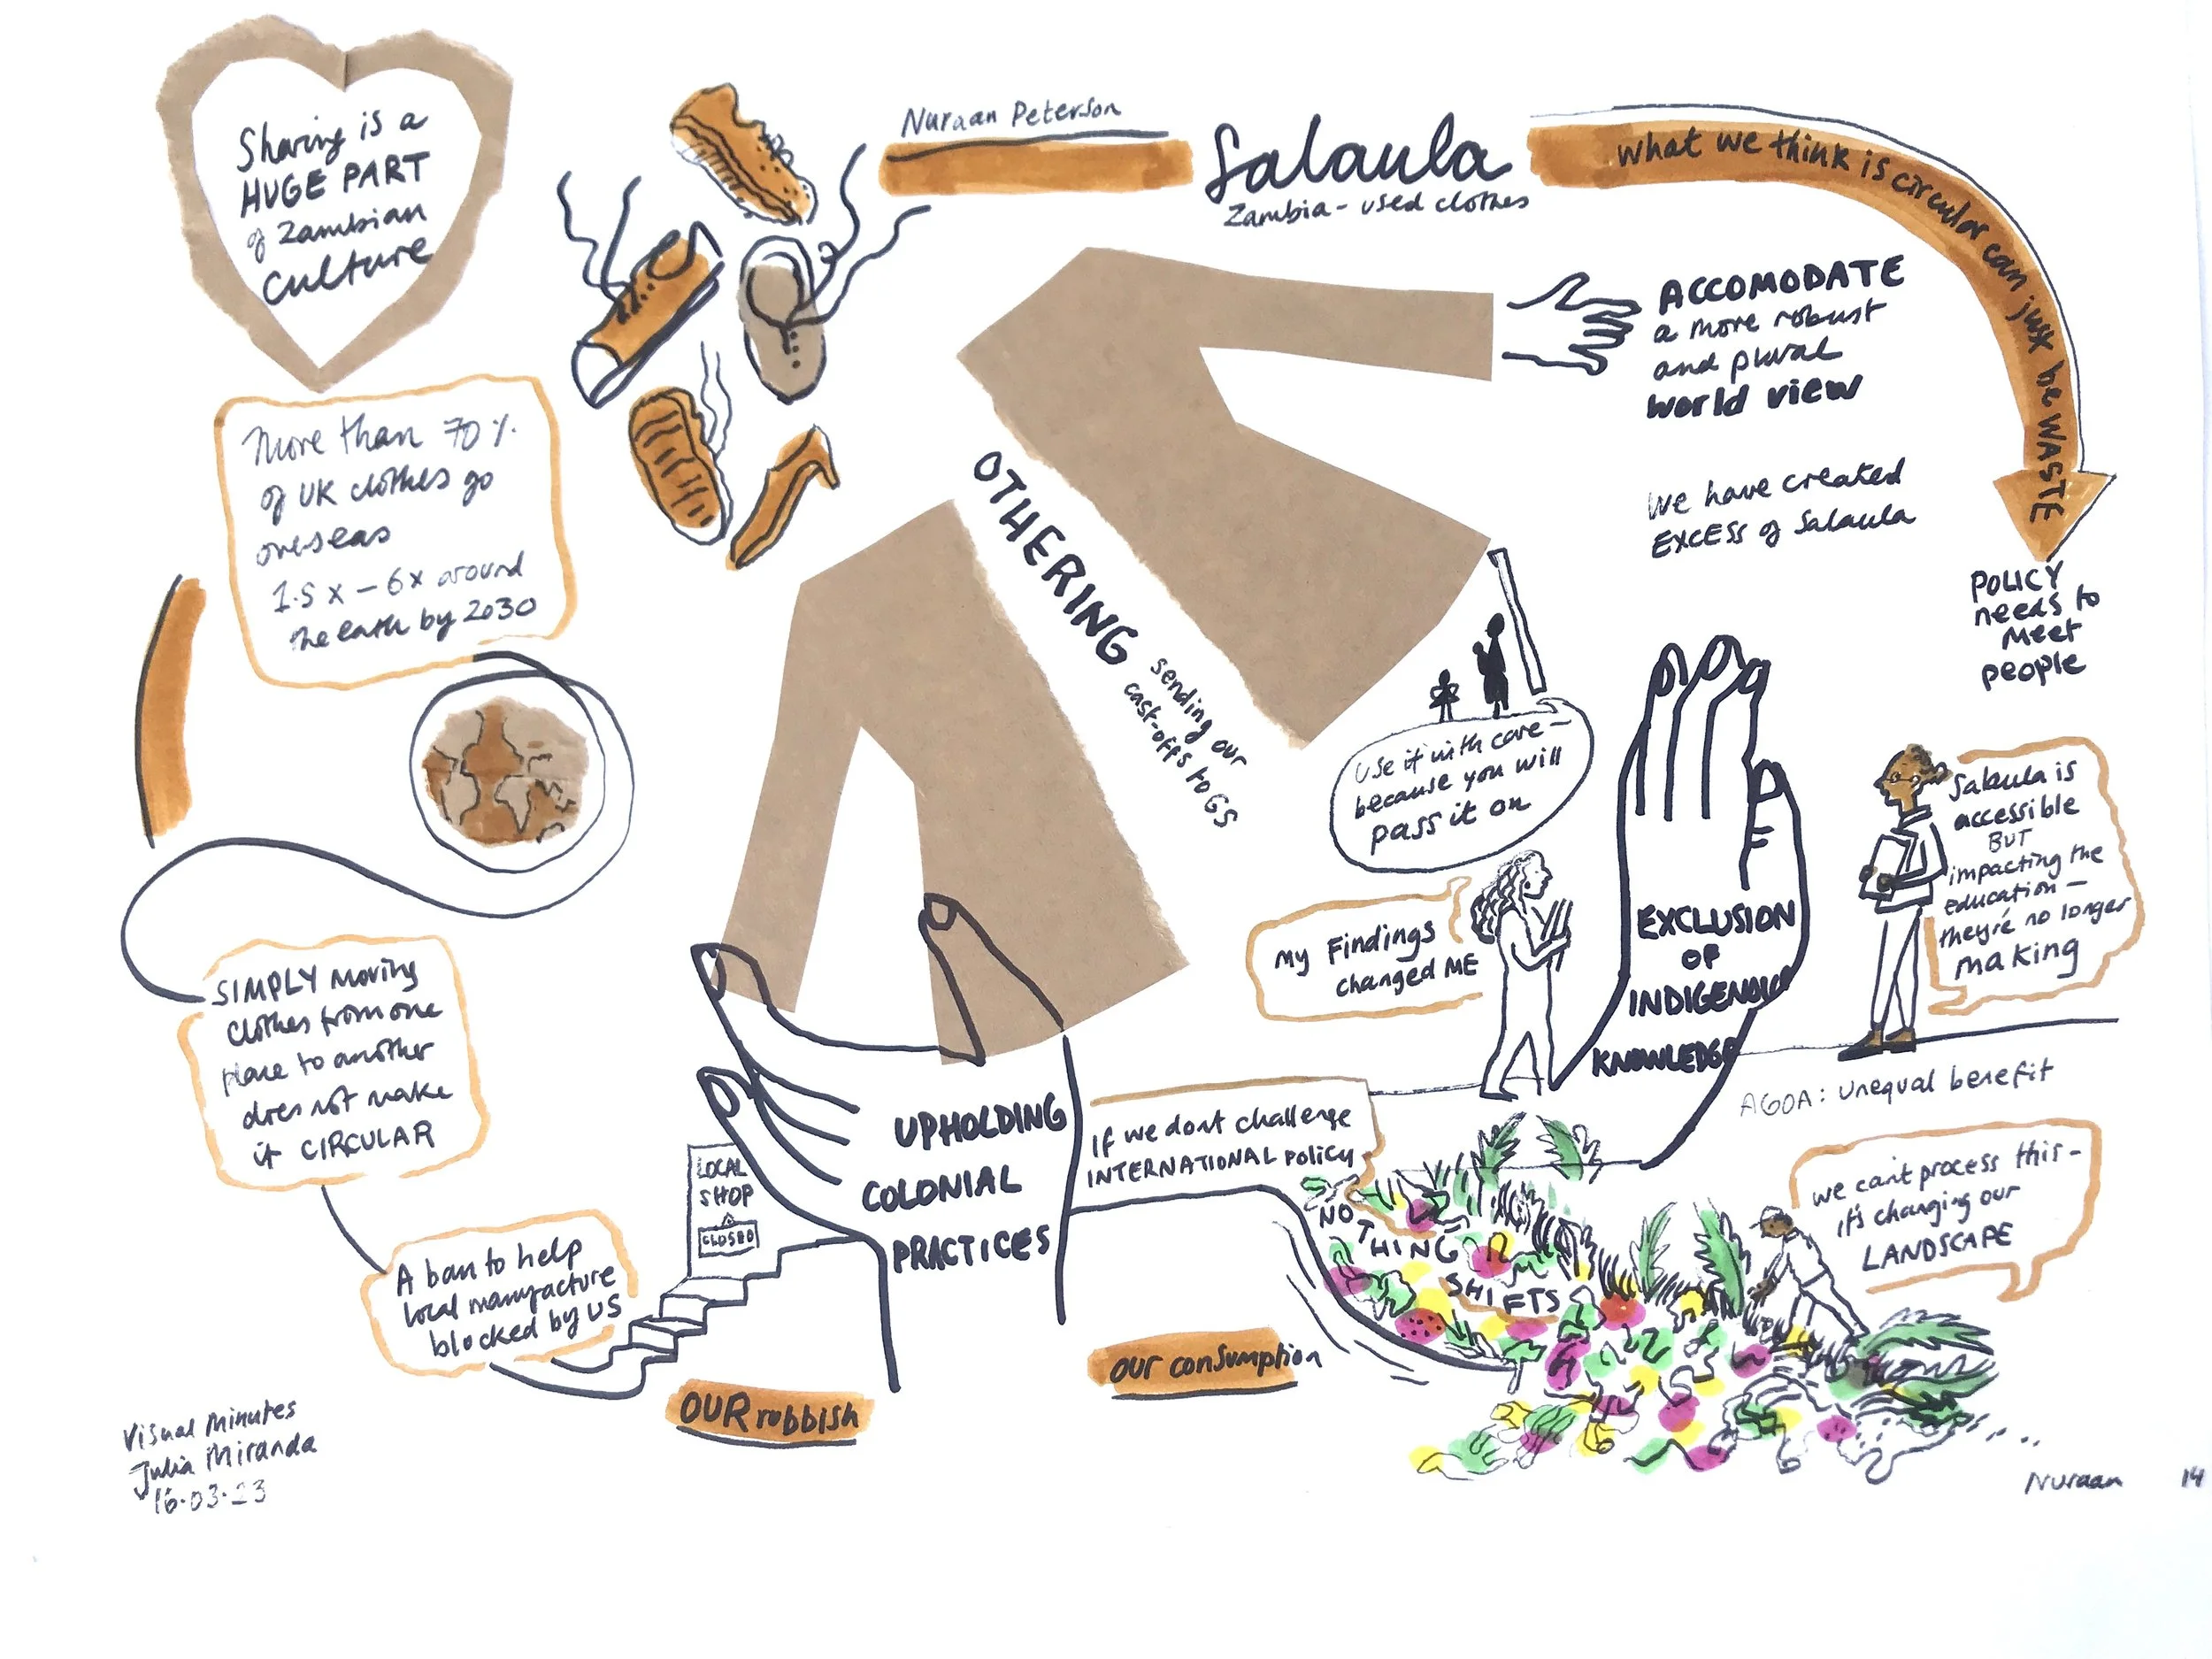 Sharing is a
HUGE PART
of Zambian
culture
Nuraan Peterson
Salaula
Zambia - used clothes
what we think is circular can just be WASTE
ACCOMODATE
a more robust
and plural
world view
We have created
EXCESS of Salaula
POLICY
needs to
meet
people
More than 70%
of UK clothes go
overseas
1.5x - 6x around
the earth by 2030
OTHERING
sending our
cast-offs to GS
Use it with care -
because you will
pass it on
My Findings
changed ME
EXCLUSION
OF
INDIGENOUS
KNOWLEDGE
Salaula is
accessible
BUT
impacting the
education -
they're no longer
making
AGOA: unequal benefit
SIMPLY moving
clothes from one
place to another
does not make
it CIRCULAR
A ban to help
local manufacture
blocked by US
LOCAL
SHOP
CLOSED
UPHOLDING
COLONIAL
PRACTICES
If we dont challenge
INTERNATIONAL policy
NO
THING
SHIFTS
we can't process this -
it's changing our
LANDSCAPE
OUR rubbish
our consumption
Visual Minutes
Julia Miranda
16.03.23
Nuraan 14